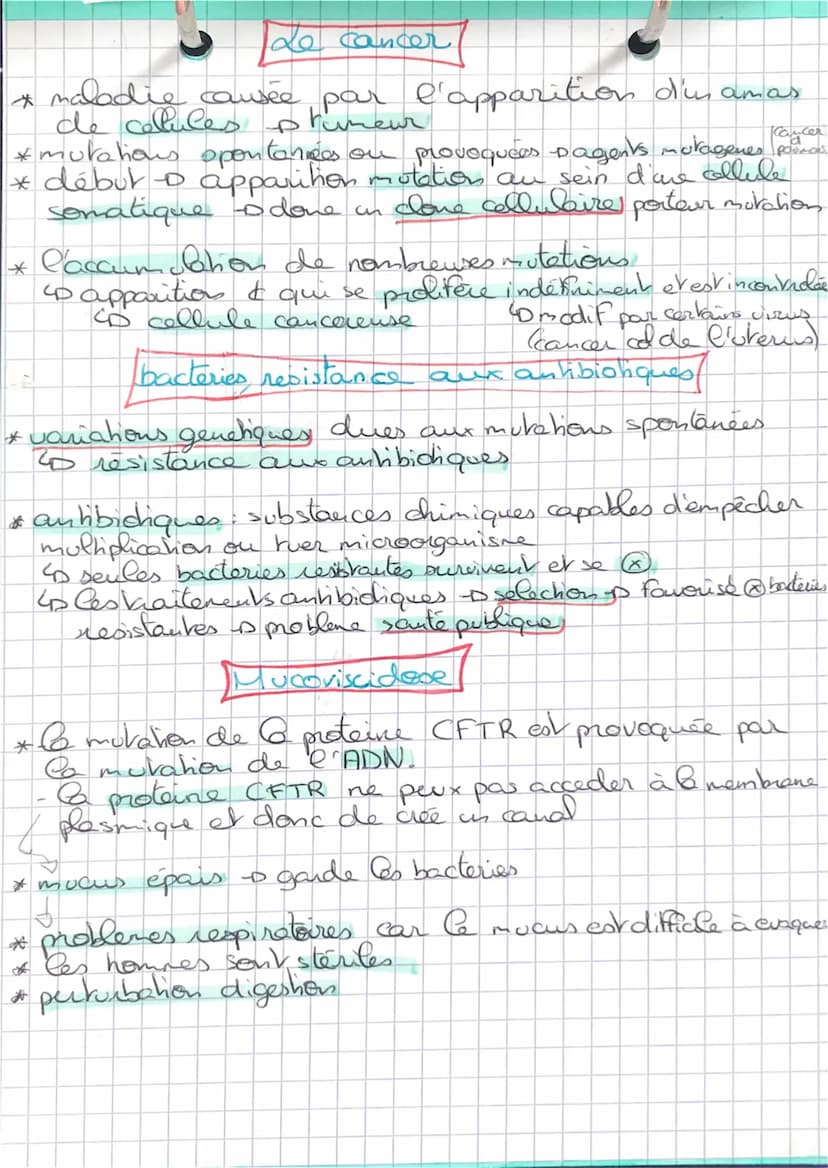 Le cancer
* maladie causée par l'apparition d'un amas
de cellules → tumeur
* mutations spontanées ou provoquées → agents mutagènes (cancer
poumons
* début → apparition mutation au sein d'une cellule
somatique → donc un clone cellulaire porteur mutation
* l'accumulation de nombreuses mutations
↳ apparition qui se prolifère indéfiniment et est incontrolée
↳ cellule cancereuse ↳ modif par certains virus
(cancer col de l'uterus)
bacteries, resistance aux antibiotiques
* variations genetiques dues aux mutations spontanées
↳ résistance aux antibiotiques
* antibiotiques : substances chimiques capables d'empêcher
multiplication ou tuer microorganisme
↳ seules bacteries resistantes survivent et se ⓧ
↳ les traitements antibiotiques → selection → favorisé ⓧ bacteries
resistantes → probleme santé publique
Mucoviscidose
* la mutation de la proteine CFTR est provoquée par
la mutation de l'ADN.
- la proteine CFTR ne peux pas acceder à la membrane
plasmique et donc de crée un canal
* mucus épais → garde les bacteries
* problemes respiratoires car le mucus est difficile à evaquer
* les hommes sont stériles
* perturbation digestion